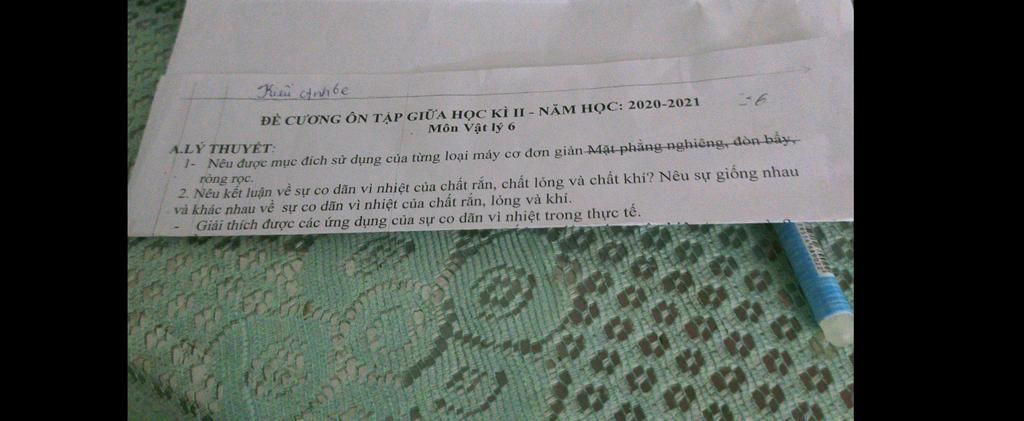 Kiều Anh 6e
ĐỀ CƯƠNG ÔN TẬP GIỮA HỌC KÌ II - NĂM HỌC: 2020-2021
Môn Vật lý 6
A.LÝ THUYẾT:
1- Nêu được mục đích sử dụng của từng loại máy cơ đơn giản Mặt phẳng nghiêng, đòn bẩy,
ròng rọc.
2. Nêu kết luận về sự co dãn vì nhiệt của chất rắn, chất lỏng và chất khí? Nêu sự giống nhau
và khác nhau về sự co dãn vì nhiệt của chất rắn, lỏng và khí.
- Giải thích được các ứng dụng của sự co dãn vì nhiệt trong thực tế.